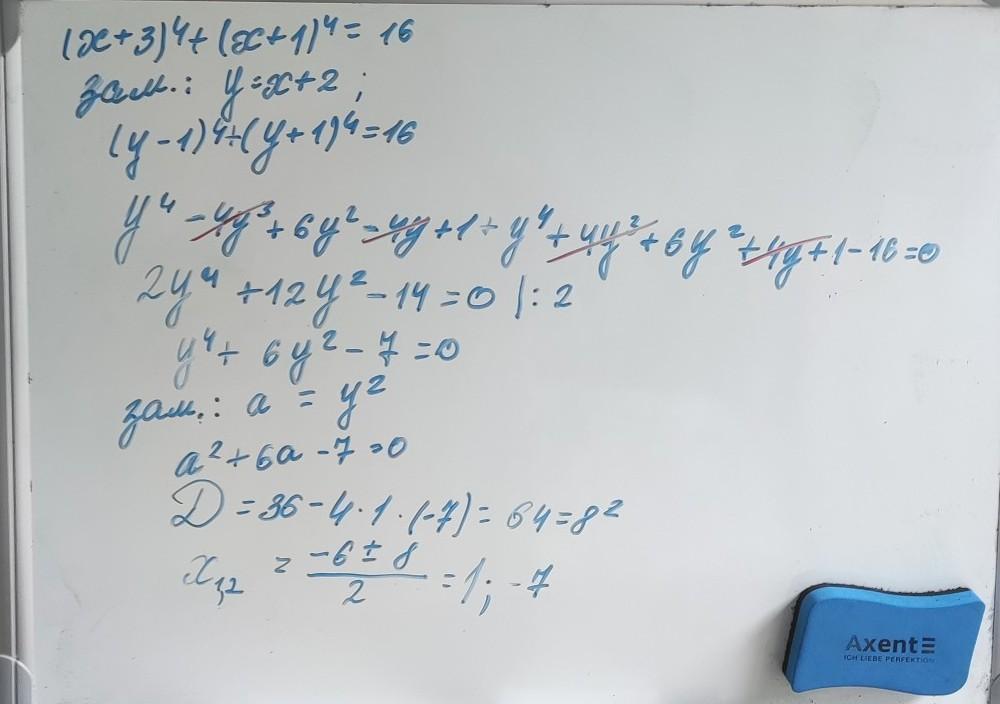 (x+3)⁴+(x+1)⁴=16
зам.: y=x+2;
(y-1)⁴+(y+1)⁴=16
y⁴-4y³+6y²-4y+1+y⁴+4y³+6y²+4y+1-16=0
2y⁴+12y²-14=0 |:2
y⁴+6y²-7=0
зам.: a=y²
a²+6a-7=0
D=36-4·1·(-7)=64=8²
x₁,₂=(-6±8)/2=1; -7
Axent
ICH LIEBE PERFEKTION